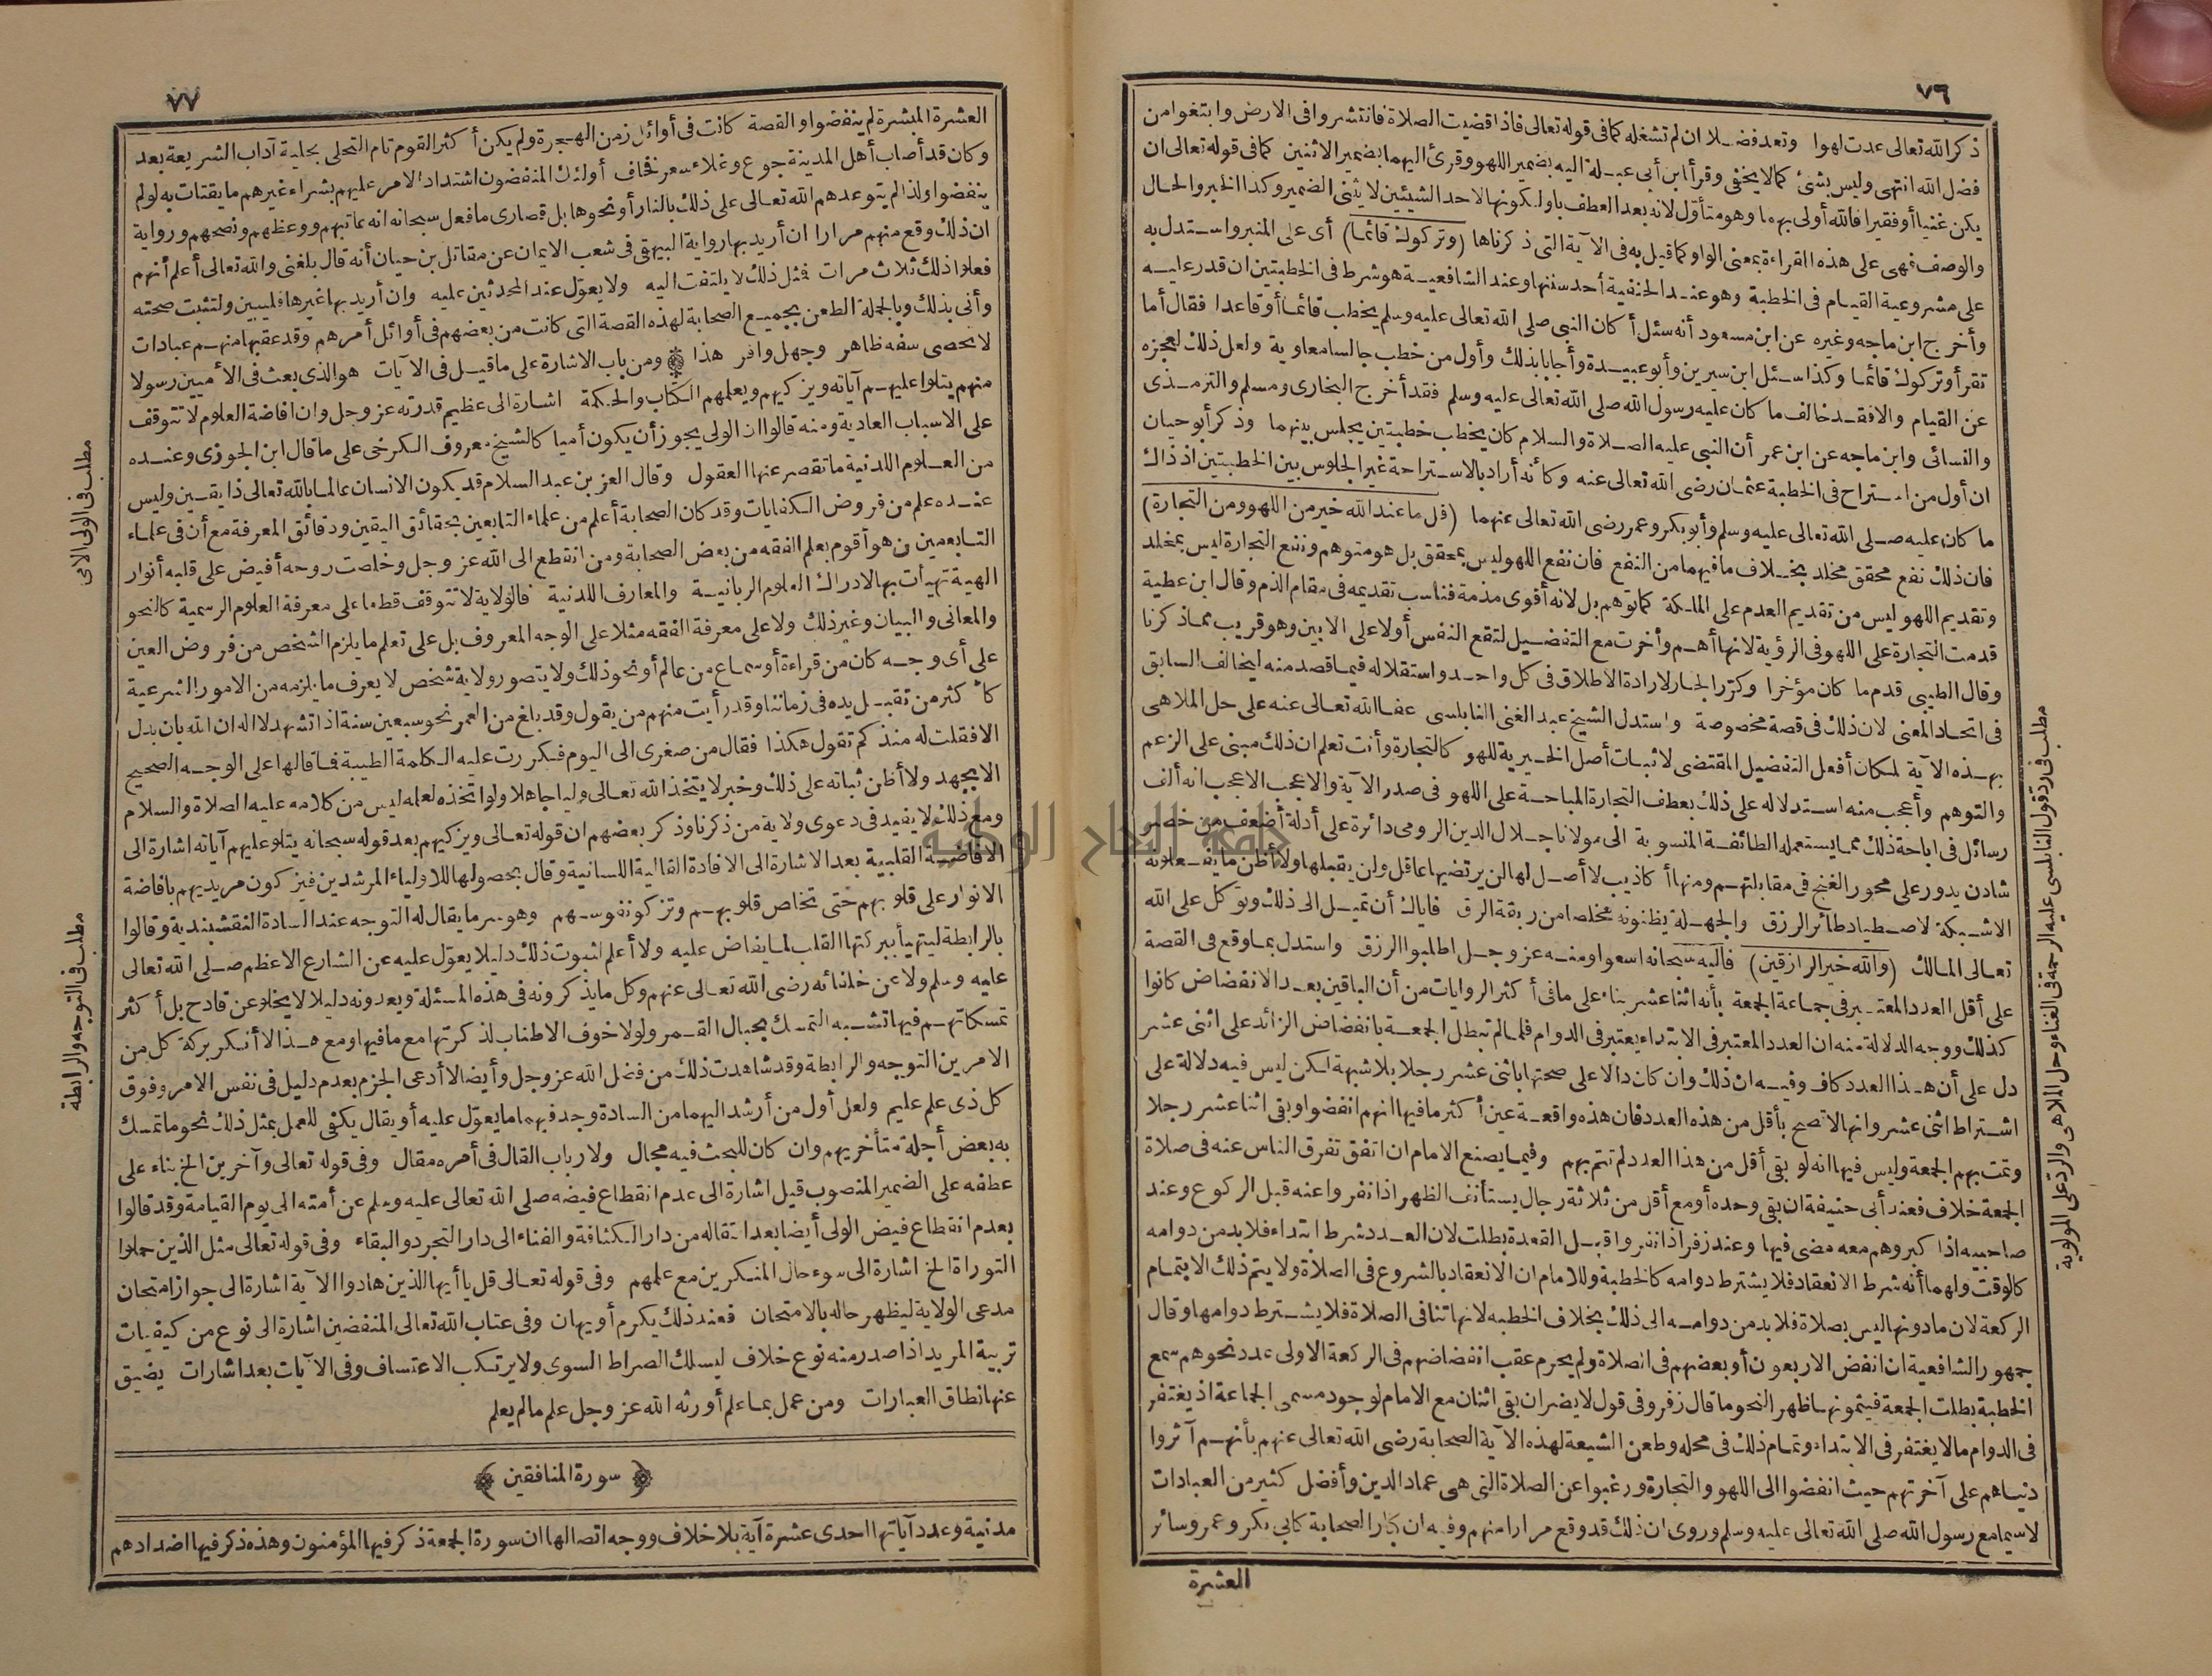 ٧٦
ذكر الله تعالى عدت لهوا وتعد فضلا ان لم تشغله كما في قوله تعالى فاذا قضيت الصلاة فانتشروا في الارض وابتغوا من
فضل الله انتهى وليس بشئ كما لا يخفى وقرأ ابن أبي عبلة اليه بضمير اللهو وقرئ اليهما بضمير الاثنين كما في قوله تعالى ان
يكن غنيا أو فقيرا فالله أولى بهما وهو متأول لانه بعد العطف باو لكونها لاحد الشيئين لا يثنى الضمير وكذا الخبر والحال
والوصف فهى على هذه القراءة بمعنى الواو كما قيل به في الآية التى ذكرناها (وتركوك قائما) أى على المنبر واستدل به
على مشروعية القيام في الخطبة وهو عند الحنفية أحد سننها وعند الشافعية هو شرط في الخطبتين ان قدر عليه
وأخرج ابن ماجه وغيره عن ابن مسعود أنه سئل أكان النبي صلى الله تعالى عليه وسلم يخطب قائما أو قاعدا فقال أما
تقرأ وتركوك قائما وكذا سئل ابن سيرين وأبو عبيدة وأجابا بذلك وأول من خطب جالسا معاوية ولعل ذلك لعجزه
عن القيام والا فقد خالف ما كان عليه رسول الله صلى الله تعالى عليه وسلم فقد أخرج البخارى ومسلم والترمذى
والنسائى وابن ماجه عن ابن عمر أن النبي عليه الصلاة والسلام كان يخطب خطبتين يجلس بينهما وذكر أبو حيان
ان أول من استراح في الخطبة عثمان رضى الله تعالى عنه وكأنه أراد بالاستراحة غير الجلوس بين الخطبتين اذ ذاك
ما كان عليه صلى الله تعالى عليه وسلم وأبو بكر وعمر رضى الله تعالى عنهما (قل ما عند الله خير من اللهو ومن التجارة)
فان ذلك نفع محقق مخلد بخلاف ما فيهما من النفع فان نفع اللهو ليس بمحقق بل هو متوهم ونفع التجارة ليس بمخلد
وتقديم اللهو ليس من تقديم العدم على الملكة كما توهم بل لانه أقوى مذمة فناسب تقديمه في مقام الذم وقال ابن عطية
قدمت التجارة على اللهو في الرؤية لانها أهم وأخرت مع التفضيل لتقع النفس أولا على الابين وهو قريب مما ذكرنا
وقال الطيبي قدم ما كان مؤخرا وكرر الجار لارادة الاطلاق في كل واحد واستقلاله فيما قصد منه ليخالف السابق
في اتحاد المعنى لان ذلك في قصة مخصوصة واستدل الشيخ عبد الغنى النابلسى عفا الله تعالى عنه على حل الملاهى
بهذه الآية لمكان أفعل التفضيل المقتضى لاثبات أصل الخيرية للهو كالتجارة وأنت تعلم ان ذلك مبنى على الزعم
والتوهم وأعجب منه استدلاله على ذلك بعطف التجارة المباحة على اللهو في صدر الآية والاعجب الاعجب انه ألف
رسائل في اباحة ذلك مما يستعمله الطائفة المنسوبة الى مولانا جلال الدين الرومى دائرة على أدلة أضعف من خصر
شادن يدور على محور الغنج في مقابلتهم ومنها أكاذيب لا أصل لها لن يرتضيها عاقل ولن يقبلها ولا أظن ما يفعلونه
الا شبكة لاصطياد طائر الرزق والجهلة يظنونه مخلصا من ربقة الرق فاياك أن تميل الى ذلك وتوكل على الله
تعالى المالك (والله خير الرازقين) فاليه سبحانه اسعوا ومنه عز وجل اطلبوا الرزق واستدل بما وقع في القصة
على أقل العدد المعتبر في جماعة الجمعة بأنه اثنا عشر بناء على ما في أكثر الروايات من أن الباقين بعد الانفضاض كانوا
كذلك ووجه الدلالة منه ان العدد المعتبر في الابتداء يعتبر في الدوام فلما لم تبطل الجمعة بانفضاض الزائد على اثنى عشر
دل على أن هذا العدد كاف وفيه ان ذلك وان كان دالا على صحتها باثنى عشر رجلا بلا شبهة لكن ليس فيه دلالة على
اشتراط اثنى عشر وانها لا تصح بأقل من هذا العدد فان هذه واقعة عين أكثر ما فيها انهم انفضوا وبقى اثنا عشر رجلا
وتمت بهم الجمعة وليس فيها انه لو بقى أقل من هذا العدد لم تتم بهم وفيما يصنع الامام ان اتفق تفرق الناس عنه في صلاة
الجمعة خلاف فعند أبى حنيفة ان بقى وحده أو مع أقل من ثلاثة رجال يستأنف الظهر اذا نفروا عنه قبل الركوع وعند
صاحبيه اذا كبر وهم معه مضى فيها وعند زفر اذا نفروا قبل القعدة بطلت لان العدد شرط ابتداء فلا بد من دوامه
كالوقت ولهما أنه شرط الانعقاد فلا يشترط دوامه كالخطبة وللامام ان الانعقاد بالشروع في الصلاة ولا يتم ذلك الا بتمام
الركعة لان ما دونها ليس بصلاة فلا بد من دوامه الى ذلك بخلاف الخطبه لانها تنافى الصلاة فلا يشترط دوامها وقال
جمهور الشافعية ان انفض الاربعون أو بعضهم في الصلاة ولم يحرم عقب انفضاضهم في الركعة الاولى عدد نحوهم سمع
الخطبة بطلت الجمعة فيتمونها ظهرا لنحو ما قال زفر وفى قول لا يضر ان بقى اثنان مع الامام لوجود مسمى الجماعة اذ يغتفر
في الدوام ما لا يغتفر في الابتداء وتمام ذلك في محله وطعن الشيعة لهذه الآية الصحابة رضى الله تعالى عنهم بأنهم آثروا
دنياهم على آخرتهم حيث انفضوا الى اللهو والتجارة ورغبوا عن الصلاة التى هى عماد الدين وأفضل كثير من العبادات
لا سيما مع رسول الله صلى الله تعالى عليه وسلم وروى ان ذلك قد وقع مرارا منهم وفيه ان كبار الصحابة كابى بكر وعمر وسائر
العشرة
مطلب في رد قول النابلسى عليه الرحمة في الغناء وحل الملاهى والرد على المولوية
٧٧
العشرة المبشرة لم ينفضوا والقصة كانت في أوائل زمن الهجرة ولم يكن أكثر القوم تام التحلى بحلية آداب الشريعة بعد
وكان قد أصاب أهل المدينة جوع وغلاء سعر فخاف أولئك المنفضون اشتداد الامر عليهم بشراء غيرهم ما يقتات به لو لم
ينفضوا ولذا لم يتوعدهم الله تعالى على ذلك بالنار أو نحوها بل قصارى ما فعل سبحانه انه عاتبهم ووعظهم ونصحهم ورواية
ان ذلك وقع منهم مرارا ان أريد بها رواية البيهقى في شعب الايمان عن مقاتل بن حيان أنه قال بلغنى والله تعالى أعلم أنهم
فعلوا ذلك ثلاث مرات فمثل ذلك لا يلتفت اليه ولا يعول عند المحدثين عليه وان أريد بها غيرها فليبين ولتثبت صحته
وأنى بذلك وبالجملة الطعن بجميع الصحابة لهذه القصة التى كانت من بعضهم في أوائل أمرهم وقد عقبها منهم عبادات
لا تحصى سفه ظاهر وجهل وافر هذا ۞ ومن باب الاشارة على ما قيل في الآيات هو الذى بعث في الأميين رسولا
منهم يتلوا عليهم آياته ويزكيهم ويعلمهم الكتاب والحكمة اشارة الى عظيم قدرته عز وجل وان افاضة العلوم لا تتوقف
على الاسباب العادية ومنه قالوا ان الولى يجوز أن يكون أميا كالشيخ معروف الكرخى على ما قال ابن الجوزى وعنده
من العلوم اللدنية ما تقصر عنها العقول وقال العز بن عبد السلام قد يكون الانسان عالما بالله تعالى ذا يقين وليس
عنده علم من فروض الكفايات وقد كان الصحابة أعلم من علماء التابعين بحقائق اليقين ودقائق المعرفة مع أن في علماء
التابعين من هو أقوم بعلم الفقه من بعض الصحابة ومن انقطع الى الله عز وجل وخلصت روحه أفيض على قلبه أنوار
الهية تهيأت بها لادراك العلوم الربانية والمعارف اللدنية فالولاية لا تتوقف قطعا على معرفة العلوم الرسمية كالنحو
والمعانى والبيان وغير ذلك ولا على معرفة الفقه مثلا على الوجه المعروف بل على تعلم ما يلزم الشخص من فروض العين
على أى وجه كان من قراءة أو سماع من عالم أو نحو ذلك ولا يتصور ولاية شخص لا يعرف ما يلزمه من الامور الشرعية
كأكثر من تقبل يده في زماننا وقد رأيت منهم من يقول وقد بلغ من العمر نحو سبعين سنة اذا تشهد لا اله ان الله بان بدل
الا فقلت له منذ كم تقول هكذا فقال من صغرى الى اليوم فكررت عليه الكلمة الطيبة فما قالها على الوجه الصحيح
الا بجهد ولا أظن ثباته على ذلك وخبر لا يتخذ الله تعالى وليا جاهلا ولو اتخذه لعلمه ليس من كلامه عليه الصلاة والسلام
ومع ذلك لا يفيد في دعوى ولاية من ذكرنا وذكر بعضهم ان قوله تعالى ويزكيهم بعد قوله سبحانه يتلو عليهم آياته اشارة الى
الافاضة القلبية بعد الاشارة الى الافادة القالية اللسانية وقال بحصولها للاولياء المرشدين فيزكون مريديهم بافاضة
الانوار على قلوبهم حتى تخلص قلوبهم وتزكو نفوسهم وهو سر ما يقال له التوجه عند السادة النقشبندية وقالوا
بالرابطة ليتهيأ ببركتها القلب لما يفاض عليه ولا أعلم لثبوت ذلك دليلا يعول عليه عن الشارع الاعظم صلى الله تعالى
عليه وسلم ولا عن خلفائه رضى الله تعالى عنهم وكل ما يذكرونه في هذه المسئلة ويعدونه دليلا لا يخلو عن قادح بل أكثر
تمسكاتهم فيها تشبه التمسك بحبال القمر ولولا خوف الاطناب لذكرتها مع ما فيها ومع هذا لا أنكر بركة كل من
الامرين التوجه والرابطة وقد شاهدت ذلك من فضل الله عز وجل وأيضا لا أدعى الجزم بعدم دليل في نفس الامر وفوق
كل ذى علم عليم ولعل أول من أرشد اليهما من السادة وجد فيهما ما يعول عليه أو يقال يكفى للعمل بمثل ذلك نحو ما تمسك
به بعض أجلة متأخريهم وان كان للبحث فيه مجال ولارباب القال في أمره مقال وفى قوله تعالى وآخرين الخ بناء على
عطفه على الضمير المنصوب قيل اشارة الى عدم انقطاع فيضه صلى الله تعالى عليه وسلم عن أمته الى يوم القيامة وقد قالوا
بعدم انقطاع فيض الولى أيضا بعد انتقاله من دار الكثافة والفناء الى دار التجرد والبقاء وفى قوله تعالى مثل الذين حملوا
التوراة الخ اشارة الى سوء حال المنكرين مع علمهم وفى قوله تعالى قل يا أيها الذين هادوا الآية اشارة الى جواز امتحان
مدعى الولاية ليظهر حاله بالامتحان فعند ذلك يكرم أو يهان وفى عتاب الله تعالى المنفضين اشارة الى نوع من كيفيات
تربية المريد اذا صدر منه نوع خلاف ليسلك الصراط السوى ولا يرتكب الاعتساف وفى الآيات بعد اشارات يضيق
عنها نطاق العبارات ومن عمل بما علم أورثه الله عز وجل علم ما لم يعلم
﴿ سورة المنافقين ﴾
مدنية وعدد آياتها احدى عشرة آية بلا خلاف ووجه اتصالها ان سورة الجمعة ذكر فيها المؤمنون وهذه ذكر فيها اضدادهم
مطلب في الولى الامى
مطلب في التوجه والرابطة
جامعة النجاح الوطنية